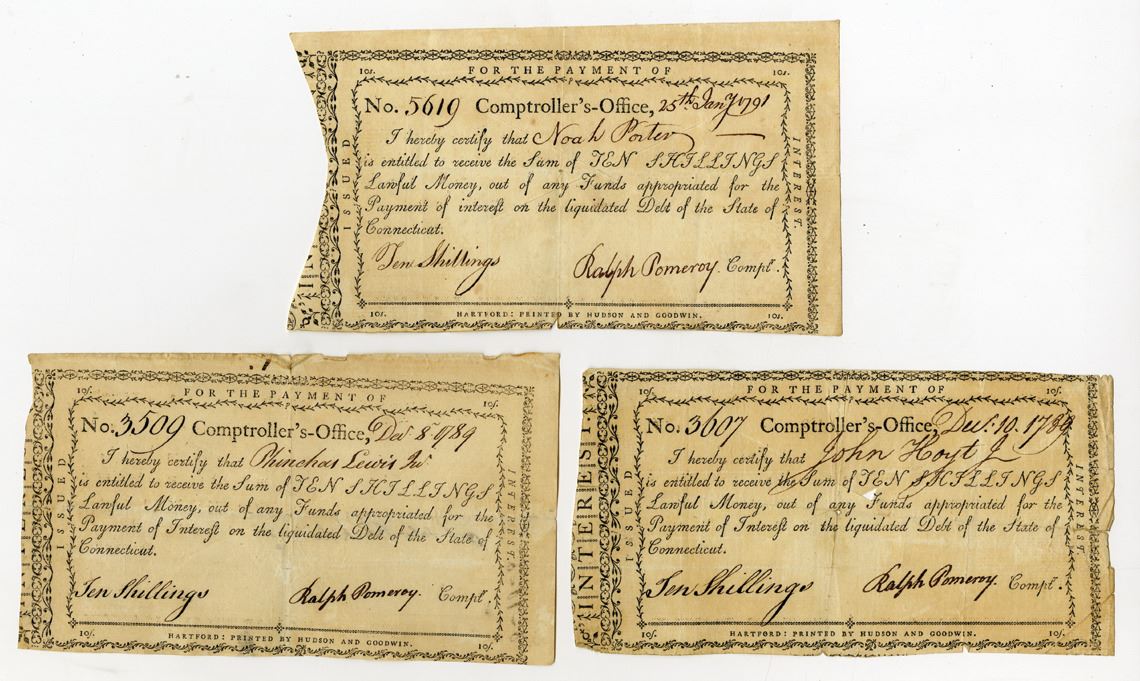 10s. FOR THE PAYMENT OF 10s.
No. 5619 Comptroller's-Office, 25th Jany 1791
I hereby certify that Noah Porter
is entitled to receive the Sum of TEN SHILLINGS
Lawful Money, out of any Funds appropriated for the
Payment of interest on the liquidated Debt of the State of
Connecticut.
Ten Shillings Ralph Pomeroy. Compt.
10s. HARTFORD: PRINTED BY HUDSON AND GOODWIN. 10s.
ISSUED
INTEREST.
10s. FOR THE PAYMENT OF 10s.
No. 3509 Comptroller's-Office, Decr 8 1789
I hereby certify that Phinehas Lewis Junr
is entitled to receive the Sum of TEN SHILLINGS
Lawful Money, out of any Funds appropriated for the
Payment of Interest on the liquidated Debt of the State of
Connecticut.
Ten Shillings Ralph Pomeroy. Compt.
10s. HARTFORD: PRINTED BY HUDSON AND GOODWIN. 10s.
ISSUED
INTEREST.
10s. FOR THE PAYMENT OF 10s.
No. 3607 Comptroller's-Office, Decr. 10. 1789
I hereby certify that John Hoyt J
is entitled to receive the Sum of TEN SHILLINGS
Lawful Money, out of any Funds appropriated for the
Payment of Interest on the liquidated Debt of the State of
Connecticut.
Ten Shillings Ralph Pomeroy. Compt.
10s. HARTFORD: PRINTED BY HUDSON AND GOODWIN. 10s.
INTEREST.
ISSUED
INTEREST.